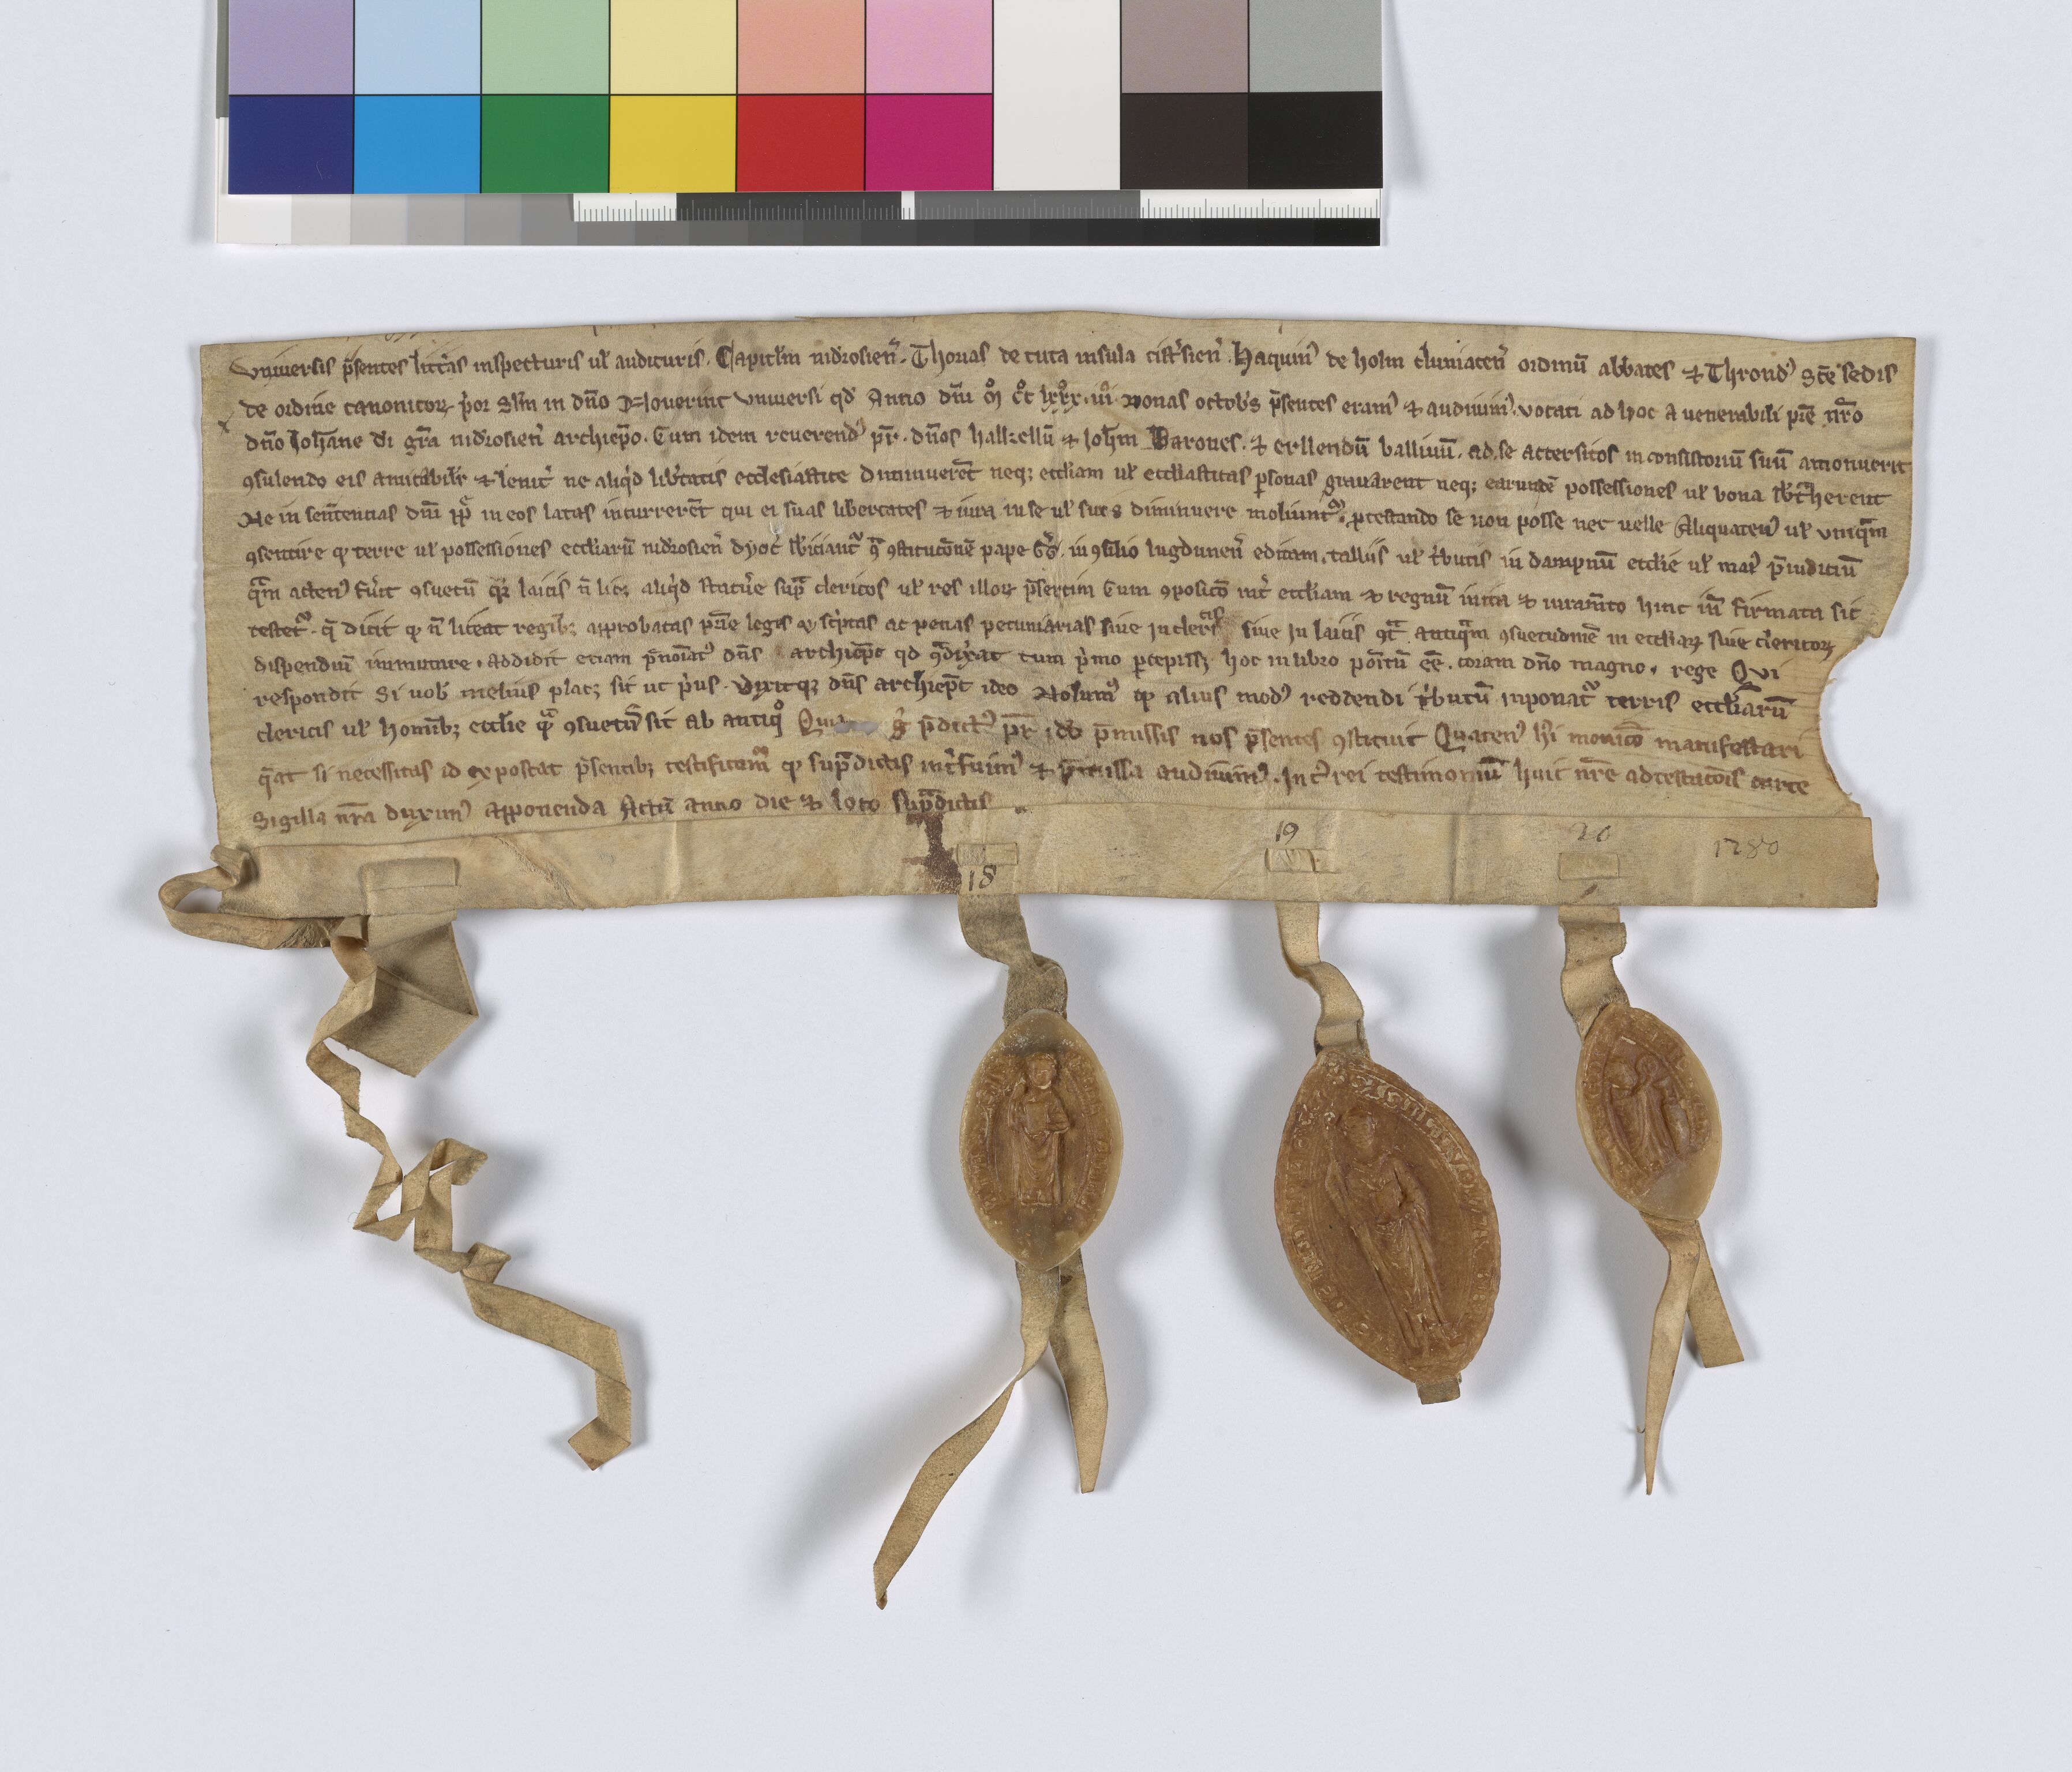 Vniuersis p̄sentes litt͛as inspecturis ul̄ audituris. Capitłm nidrosien̄. Thomas de tuta insula cist͛sien̄. Haquinꝰ de holm cluniacen̄ ordinū abbates ⁊ Throndꝰ Sc̄e sedis
de ordine canonicoꝝ p͛or Sɫm in dn̄o Nouerint vniuersi qđ Anno dn̄i m̊ cc̊ lxxx̊. iii̊ nonas octob͛s p̄sentes eramꝰ ⁊ audiuimꝰ. vocati ad hoc a venerabili pr̄e nr̄o
dn̄o Ioh̄ane di gr̄a nidrosien̄ archiep̄o. Cum idem reuerendꝰ pr̄. dn̄os hallkellū ⁊ Ioh̄m Barones. ⁊ erllendū balliuū. ad se accersitos in consistoriū suū amonuerit
ꝯsulendo eis amicabilr̄ ⁊ lenit͛ ne aliq͛d lib͛tatis ecclesiastice diminuerēt neqꝫ eccliam ul̄ eccliasticas ꝑsonas grauarent neqꝫ earundē possessiones ul̄ bona sbt͛herent
Ne in sen̄tencias dn̄i pp̄ in eos latas incurrerēt qui ei suas libertates ⁊ iura in se ul̄ suis diminuere moliunt᷑. ꝓtestando se non posse nec uelle Aliquatenꝰ ul̄ vnq̄m
ꝯsentire ꝙ terre ul̄ possessiones eccliarū nidrosien̄ dyoc̄ sbiciant᷑ ꝯ͛ ꝯstitucōnē pape G͛g. in ꝯsilio lugdunen̄ editam. talliis ul̄ t͛butis in dampnū ecclie ul̄ mai᷑ p̄iudiciū
q̄m actenꝰ fu͛it ꝯsuetū q͛ laicis n̄ licꝫ aliq͛d statu͛e sup͛ clericos ul̄ res illoꝝ p̄sertim Cum ꝯposicō int͛ eccliam ⁊ regnū inita ⁊ iuram̄to hinc in̄ firmata sic
testet᷑. q̄ dicit ꝙ n̄ liceat regibꝫ approbatas pr̄ie leges ꝯsc͛ptas ac penas pecuniarias siue in clericis siue In laicis ꝯt͛. antiq̄m ꝯsuetudinē in eccliaꝝ siue clericoꝝ
dispendiū inmutare. addidit etiam p̄noīatꝰ dn̄s archiep̄c qđ ꝯ͛dix͛at cum p͛mo ꝑcepissꝫ hoc in libro poītū eē. coram dn̄o magno. rege Qui
respondit Si uoƀ melius placꝫ sit ut p͛us. Dixitqꝫ dn̄s archiep̄c ideo Nolumꝰ ꝙ alius modꝰ reddendi t͛butū inponat᷑ terris eccliarū
clericis ul̄ hominibꝫ ecclie q͛ ꝯsuetū sit ab antiq̊ Quia g͛ p̄dictꝰ pr̄ ido p̄missis nos p̄sentes ꝯstituit Quatenꝰ hi monicō manifestari
q͛at si necessitas id expostat p̄sentibꝫ testificam᷑ ꝙ sup͛dictis int͛fuimꝰ ⁊ p̄missa audiuimꝰ. In cꝰ rei testimoniū huic nr̄e adtestacōis carte
Sigilla nr̄a duximꝰ apponenda Actū anno die ⁊ loco sup͛dictis
18 19 20 1280